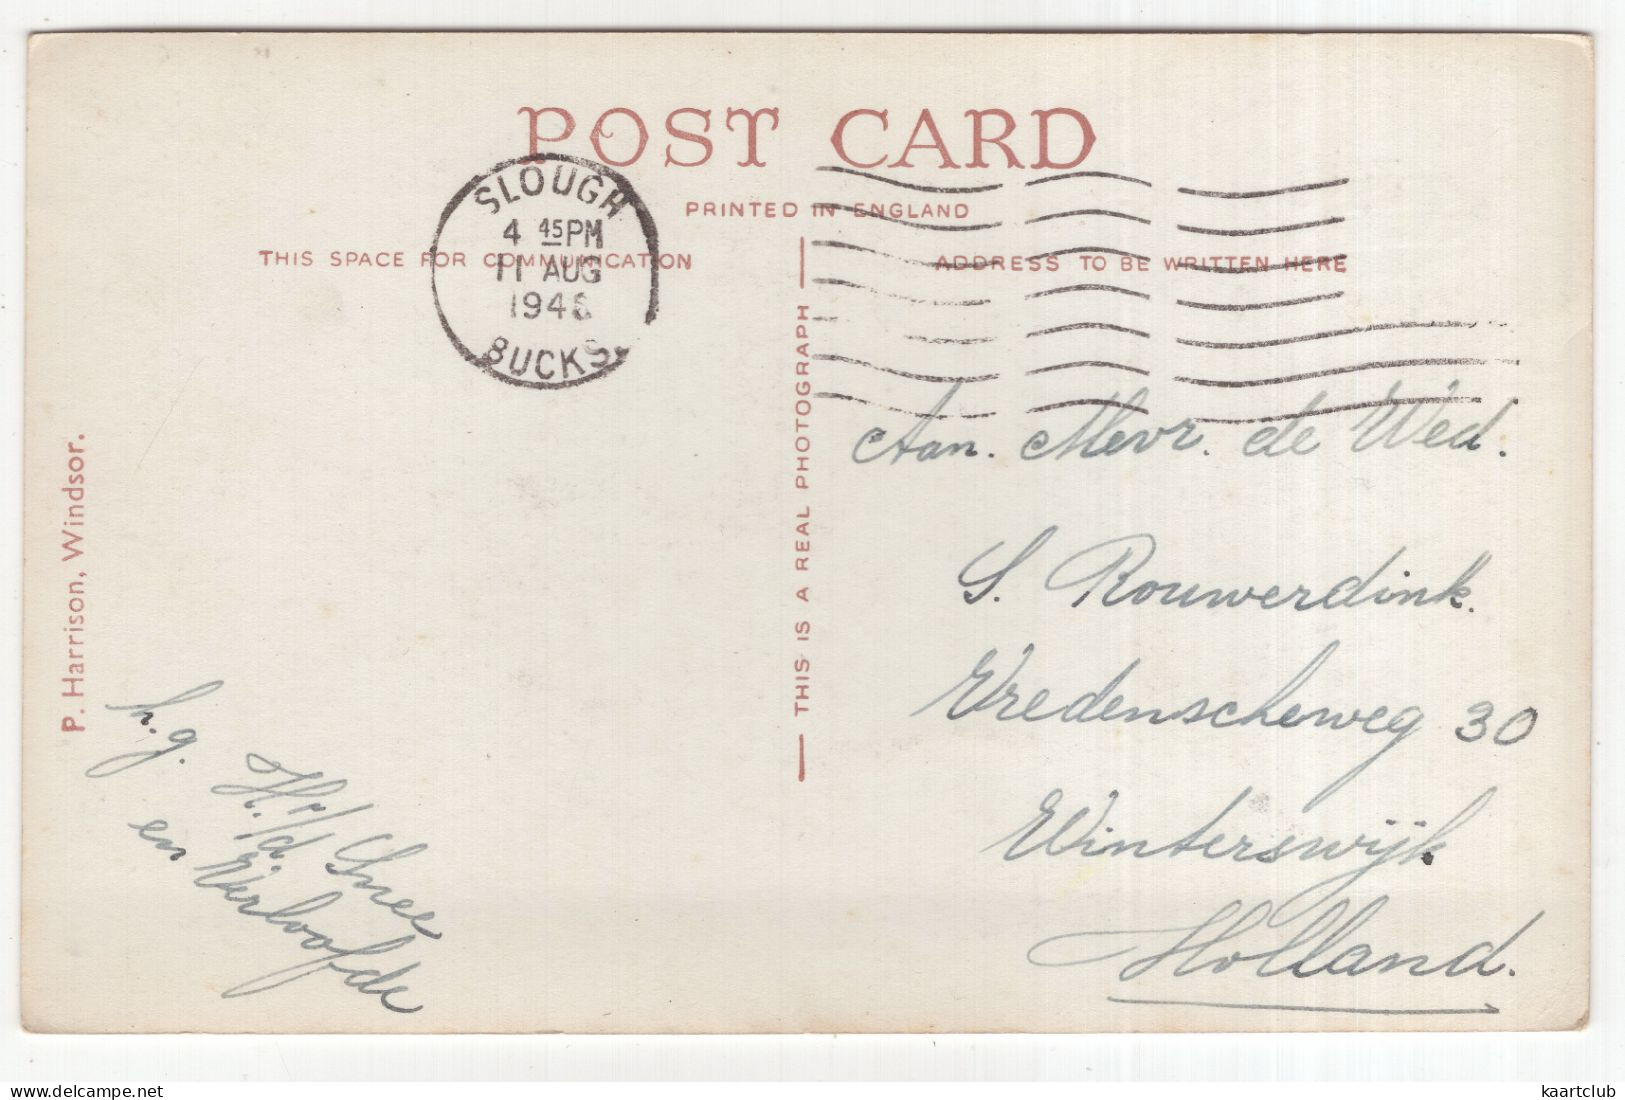 POST CARD
PRINTED IN ENGLAND
THIS SPACE FOR COMMUNICATION
ADDRESS TO BE WRITTEN HERE
SLOUGH
4 45 PM
11 AUG
194
BUCKS
THIS IS A REAL PHOTOGRAPH
P. Harrison, Windsor.
Aan. Mevr. de Wed.
S. Rouwerdink.
Vredenscheweg 30
Winterswijk
Holland.
h.g.
H. v/d. Snee
en Verloofde
https://www.delcampe.net
kaartclub